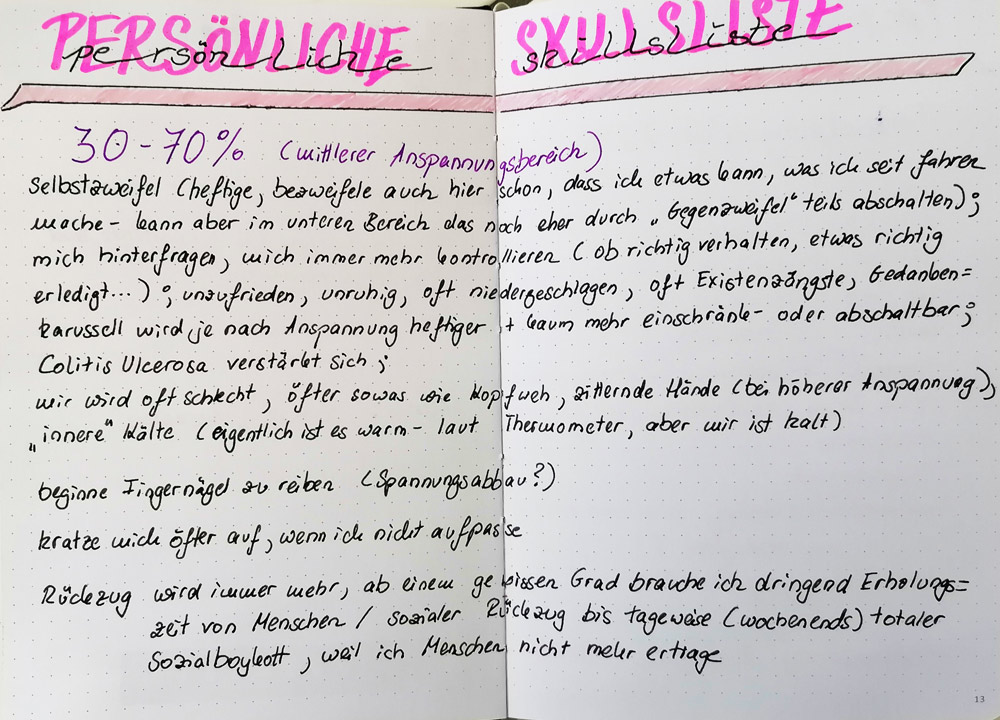 PERSÖNLICHE SKILLSLISTE
persönliche skillsliste
30-70% (mittlerer Anspannungsbereich)
Selbstzweifel (heftige, bezweifele auch hier schon, dass ich etwas kann, was ich seit Jahren
mache - kann aber im unteren Bereich das noch eher durch „Gegenzweifel" teils abschalten);
mich hinterfragen, mich immer mehr kontrollieren (ob richtig verhalten, etwas richtig
erledigt...); unzufrieden, unruhig, oft niedergeschlagen, oft Existenzängste, Gedanken=
karussell wird je nach Anspannung heftiger + kaum mehr einschränk- oder abschaltbar;
Colitis Ulcerosa verstärkt sich;
mir wird oft schlecht, öfter sowas wie Kopfweh, zitternde Hände (bei höherer Anspannung),
„innere" Kälte (eigentlich ist es warm - laut Thermometer, aber mir ist kalt)
beginne Fingernägel zu reiben (Spannungsabbau?)
kratze mich öfter auf, wenn ich nicht aufpasse
Rückzug wird immer mehr, ab einem gewissen Grad brauche ich dringend Erholungs=
zeit von Menschen / sozialer Rückzug bis tageweise (wochenends) totaler
Sozialboykott, weil ich Menschen nicht mehr ertrage
13